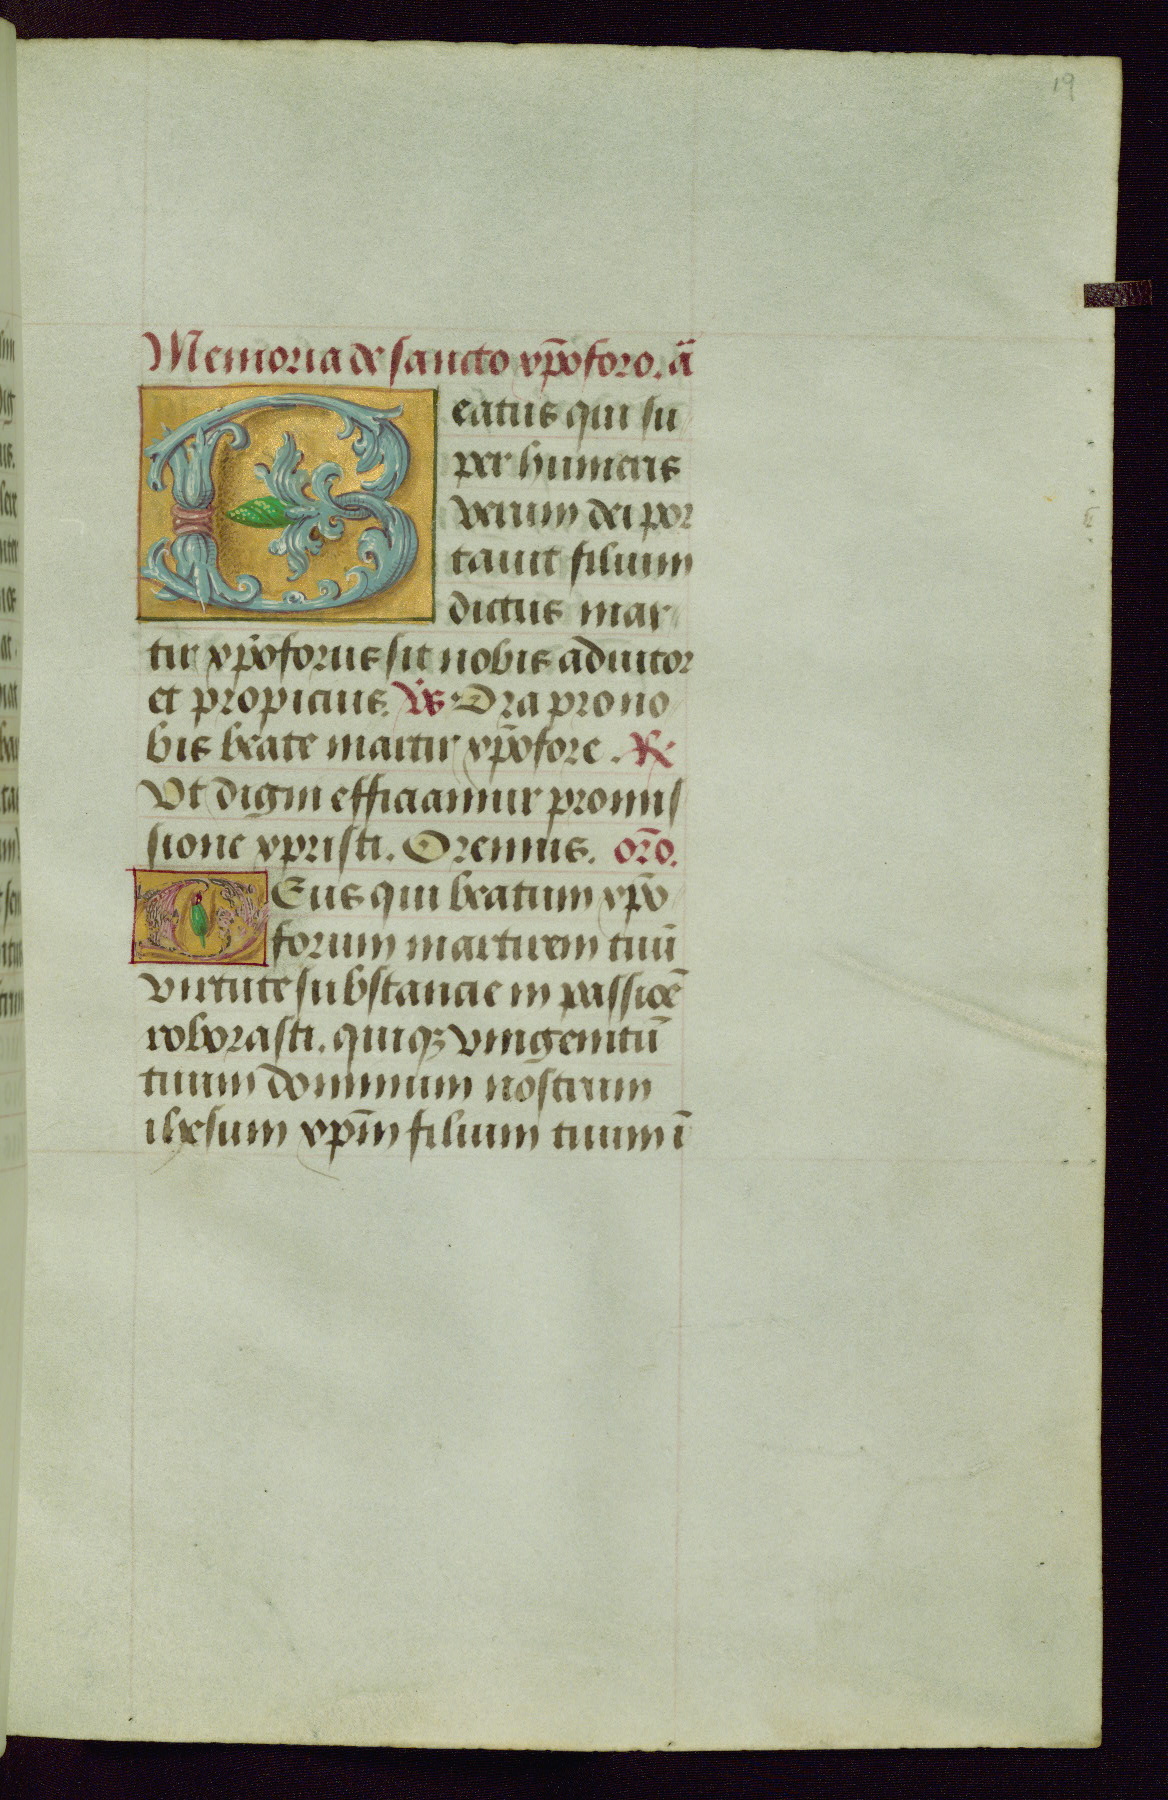 19
Memoria de sancto xp̄oforo. ā
Beatus qui su
per humeris
verum dei por
tauit filium
dictus mar
tir xp̄oforus sit nobis adiutor
et propicius. V̄s Ora pro no
bis beate martir xp̄ofore. R̄
Vt digni efficiamur promis
sione xpristi. Oremus. or̄o.
Deus qui beatum xp̄o
forum martirem tuū
virtute substancie in passiōe
roborasti. quiqꝫ vnigenitū
tuum dominum nostrum
ihesum xp̄m filium tuum ī